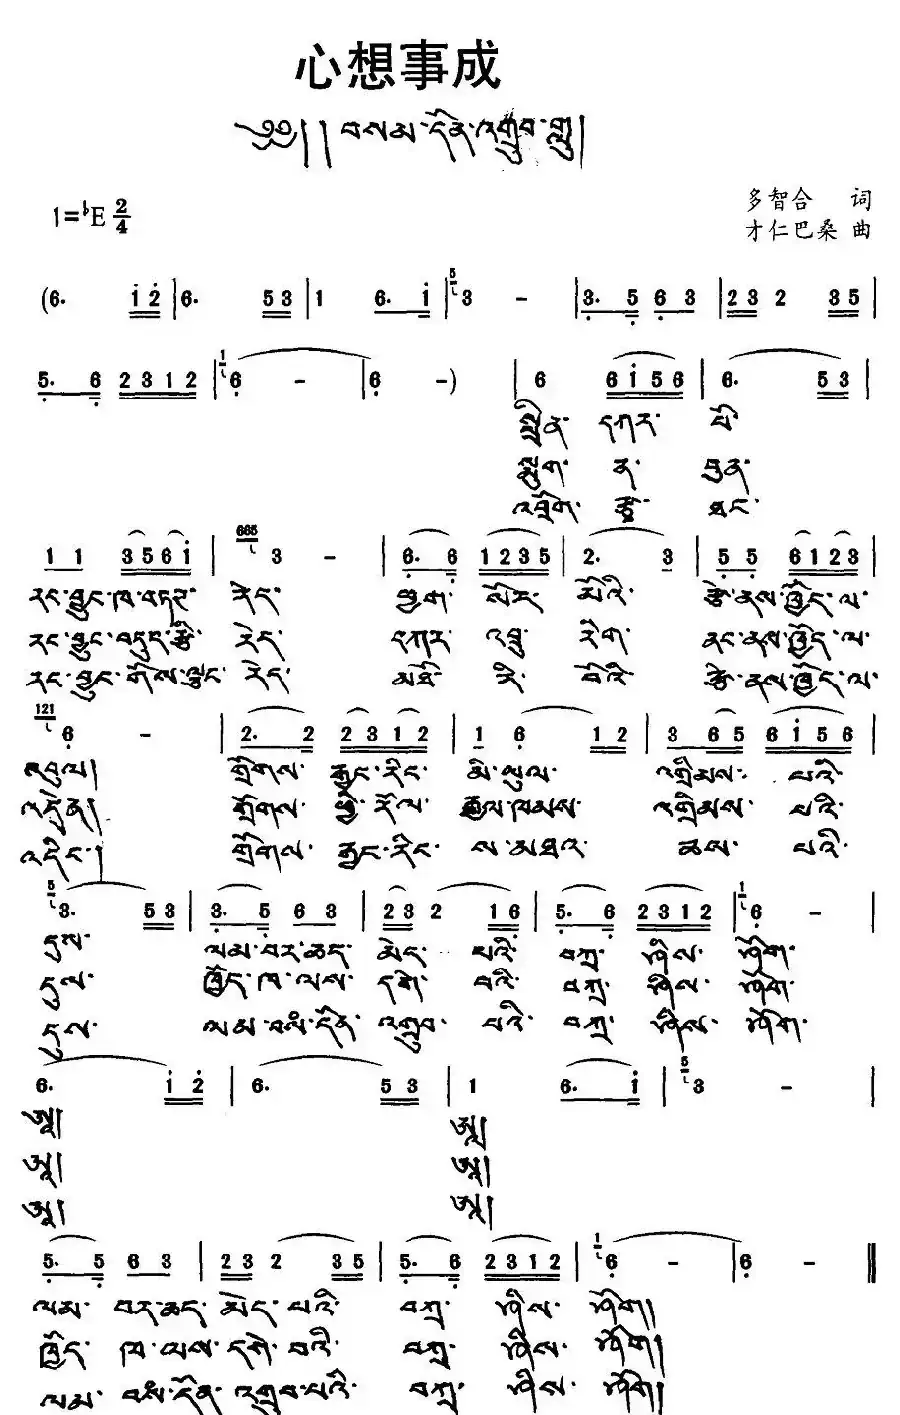 心想事成
༄༅།། བསམ་དོན་འགྲུབ་གླུ།
1=♭E 2/4
多智合 词
才仁巴桑 曲
(6. 1 2 | 6. 5 3 | 1 6. 1 | 5 3 – | 3. 5 6 3 | 2 3 2 3 5 |
5. 6 2 3 1 2 | 1 6 – | 6 –) | 6 6 1 5 6 | 6. 5 3 |
སྤྲིན་ དཀར་ པོ་
ལུག་ ན་
འབྲོག་ རྩྭ་ ཐང་
1 1 3 5 6 1 | 665 3 – | 6. 6 1 2 3 5 | 2. 3 | 5 5 6 1 2 3 |
རང་བྱུང་ཁ་ རེད་ ཕྱུག་ མོའི་ རྩེ་ནས་ཁྱོད་ལ་
རང་བྱུང་བདུད་རྩི་ རེད་ དཀར་ འབྲུ་ རིག་ ནང་ནས་ཁྱོད་ལ་
རང་བྱུང་ རེད་ མཐོ་ རི་ བོའི་ རྩེ་ནས་ཁྱོད་ལ་
121 6 – | 2. 2 2 3 1 2 | 1 6 1 2 | 3 6 5 6 1 5 6 |
འབུལ། གྲོགས་ རྒྱང་རིང་ མི་ཡུལ་ འགྲིམས་ པའི་
འདྲེན། གྲོགས་ རོལ་ རྒྱལ་ཁམས་ འགྲིམས་ པའི་
གྲོགས་ རྒྱང་རིང་ ས་མཐའ་ ཆས་ པའི་
5 3. 5 3 | 3. 5 6 3 | 2 3 2 1 6 | 5. 6 2 3 1 2 | 1 6 – |
དུས་ ལམ་བར་ཆད་ མེད་ པའི་ བཀྲ་ ཤིས་ ཤོག་
དུས་ ཁྱོད་ཁ་ལས་ དགེ་ བའི་ བཀྲ་ ཤིས་ ཤོག་
དུས་ ལམ་བསམ་དོན་ འགྲུབ་ པའི་ བཀྲ་ ཤིས་ ཤོག་
6. 1 2 | 6. 5 3 | 1 6. 1 | 5 3 – |
ཨཱ། ཨཱ།
ཨཱ། ཨཱ།
ཨཱ། ཨཱ།
5. 5 6 3 | 2 3 2 3 5 | 5. 6 2 3 1 2 | 1 6 – | 6 – ‖
ལམ་ བར་ཆད་ མེད་པའི་ བཀྲ་ ཤིས་ ཤོག།
ཁྱོད་ ཁ་ལས་ དགེ་བའི་ བཀྲ་ ཤིས་ ཤོག།
ལམ་ བསམ་དོན་ འགྲུབ་པའི་ བཀྲ་ ཤིས་ ཤོག།